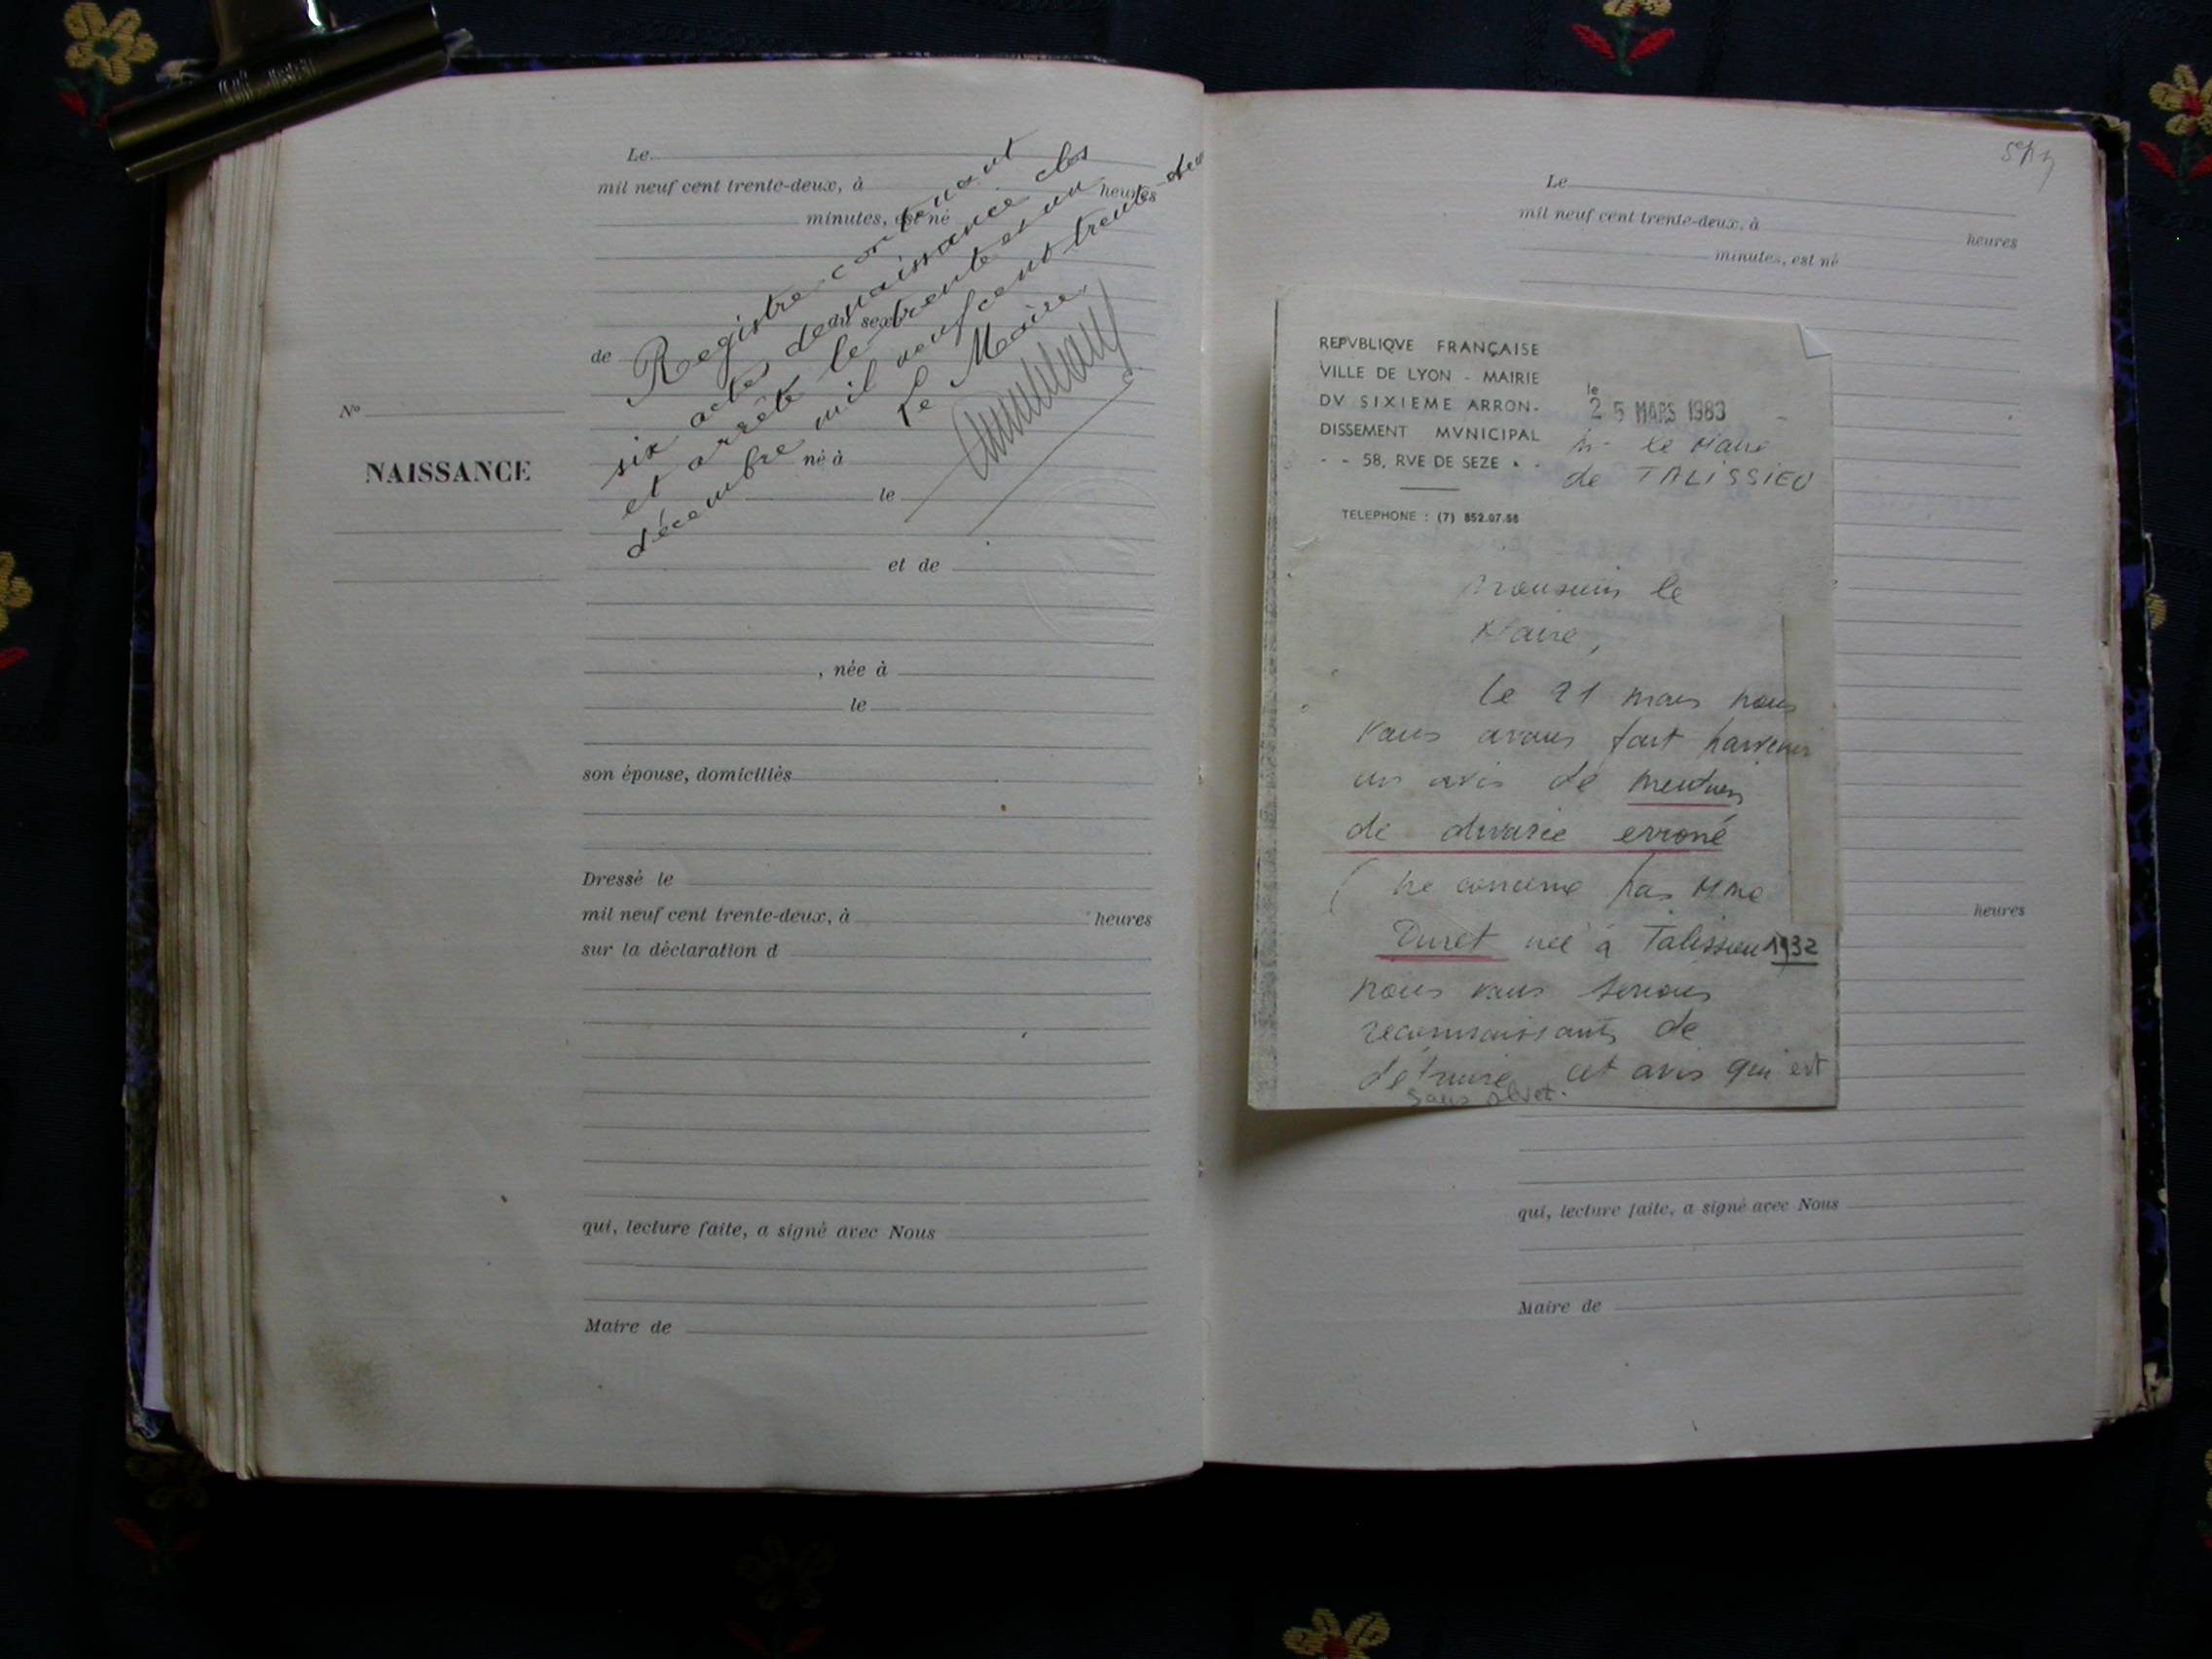 Le
mil neuf cent trente-deux, à heures
minutes, est né
du sexe
de
Registre contenant
six actes de naissance clos
et arrêté le trente et un
décembre mil neuf cent trente-deux
Le Maire
N°
NAISSANCE
né à
le
et de
, née à
le
son épouse, domiciliés
Dressé le
mil neuf cent trente-deux, à heures
sur la déclaration d
qui, lecture faite, a signé avec Nous
Maire de
Le
mil neuf cent trente-deux, à
heures
minutes, est né
REPVBLIQVE FRANÇAISE
VILLE DE LYON - MAIRIE
DV SIXIEME ARRON-
DISSEMENT MVNICIPAL
- - 58, RVE DE SEZE - -
TELEPHONE : (7) 852.07.56
le
25 MARS 1983
le Maire
de TALISSIEU
Monsieur le
Maire,
Le 21 mars nous
vous avons fait parvenir
un avis de mention
de divorce erroné
(ne concerne pas Mme
Duret née à Talissieu 1932
nous vous serions
reconnaissants de
détruire cet avis qui est
sans objet.
heures
qui, lecture faite, a signé avec Nous
Maire de